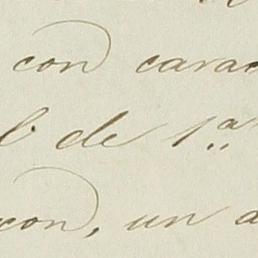 con carac
l. de 1.ª
con, un a